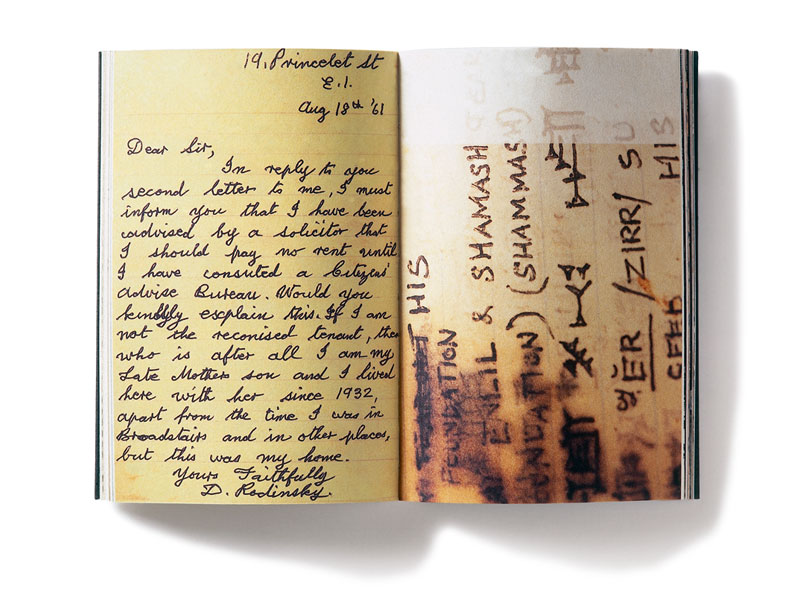 19, Princelet St
E.1.
Aug 18th '61
Dear Sir,
In reply to you
second letter to me, I must
inform you that I have been
advised by a solicitor that
I should pay no rent until
I have consuted a Citizens'
Advise Bureau. Would you
kindly esxplain this. If I am
not the reconised tenant, then
who is after all I am my
Late Mother son and I lived
here with her since 1932,
apart from the time I was in
Broadstairs and in other places,
but this was my home.
Yours Faithfully
D. Rodinsky.
HIS
FOUNDATION
ENLIL & SHAMASH
FOUNDATION) (SHAMMASH)
ĔR / ZIRR / SU
HIS